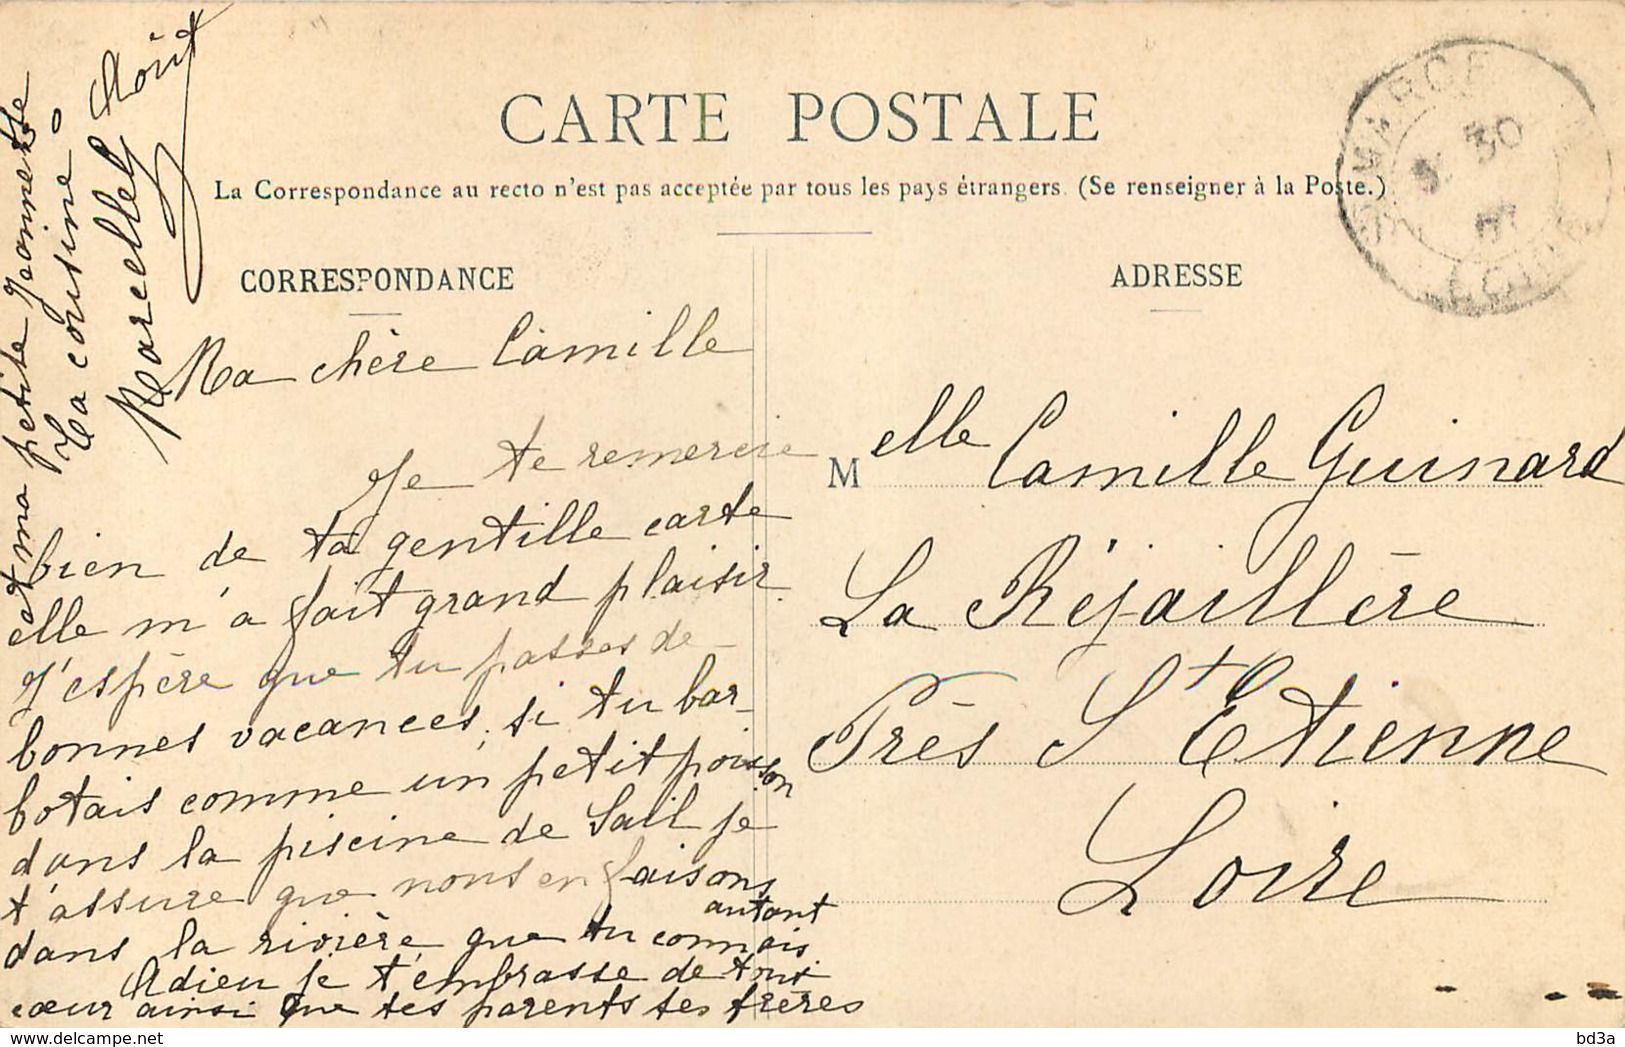 CARTE POSTALE
La Correspondance au recto n'est pas acceptée par tous les pays étrangers. (Se renseigner à la Poste.)
CORRESPONDANCE
Ma chère Camille
Je te remercie
bien de ta gentille carte
elle m'a fait grand plaisir.
J'espère que tu passes de
bonnes vacances, si tu bar-
botais comme un petit poisson
dans la piscine de Sail je
t'assure que nous en faisons
autant
dans la rivière que tu connais.
Adieu je t'embrasse de tout
cœur ainsi que tes parents tes frères
et ma petite Jeannette
Ta cousine
Marcelle
ADRESSE
Melle Camille Guinard
La Réjaillère
Près St Etienne
Loire
30
LOIRE
delcampe.net
bd3a